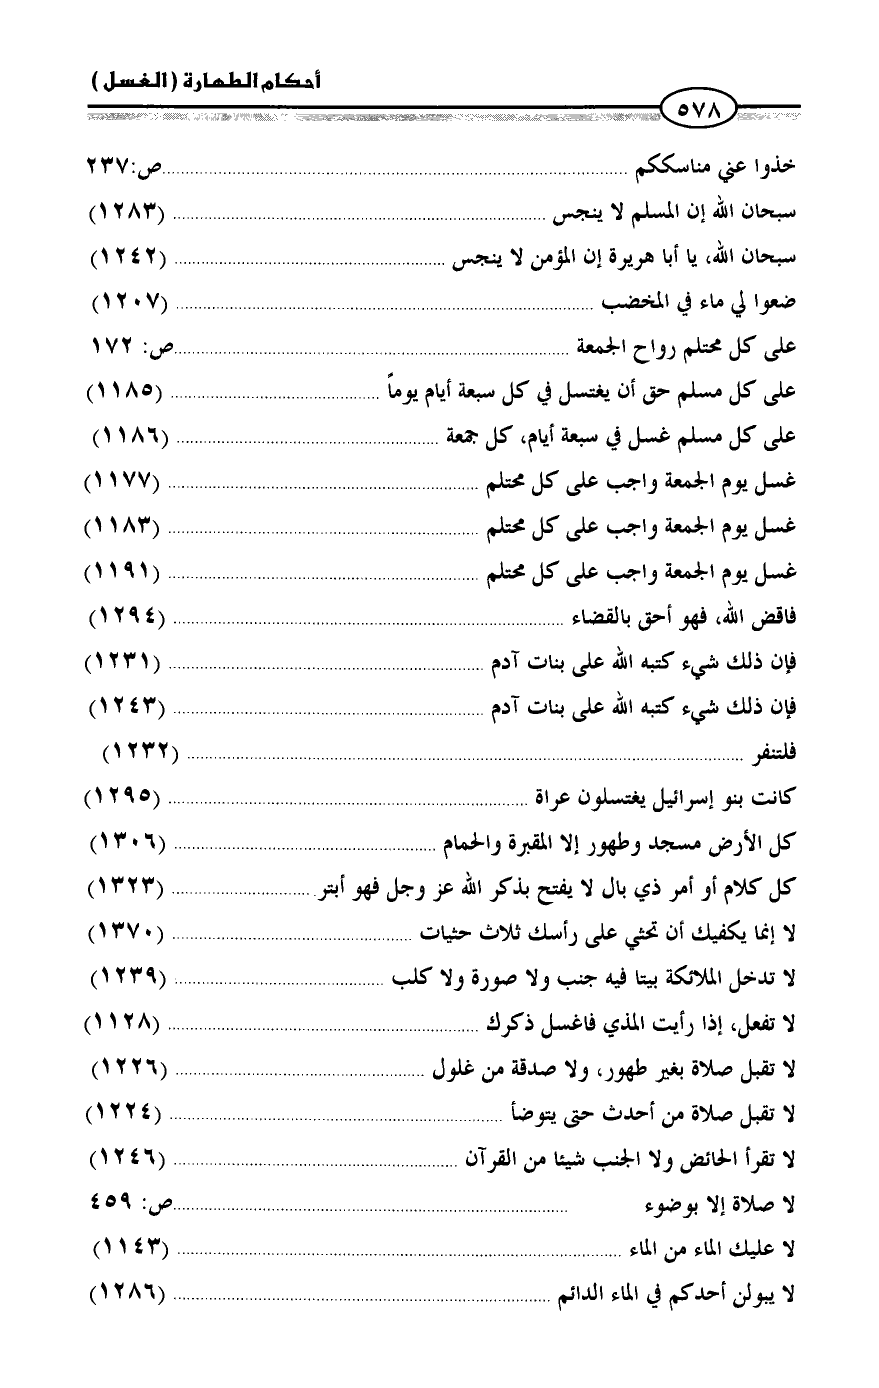 أحكام الطهارة (الغسل)
٥٧٨
خذوا عني مناسككم ........ ص: ٢٣٧
سبحان الله إن المسلم لا ينجس ........ (١٢٨٣)
سبحان الله، يا أبا هريرة إن المؤمن لا ينجس ........ (١٢٤٢)
ضعوا لي ماء في المخضب ........ (١٢٠٧)
على كل محتلم رواح الجمعة ........ ص: ١٧٢
على كل مسلم حق أن يغتسل في كل سبعة أيام يوماً ........ (١١٨٥)
على كل مسلم غسل في سبعة أيام، كل جمعة ........ (١١٨٦)
غسل يوم الجمعة واجب على كل محتلم ........ (١١٧٧)
غسل يوم الجمعة واجب على كل محتلم ........ (١١٨٣)
غسل يوم الجمعة واجب على كل محتلم ........ (١١٩١)
فاقض الله، فهو أحق بالقضاء ........ (١٢٩٤)
فإن ذلك شيء كتبه الله على بنات آدم ........ (١٢٣١)
فإن ذلك شيء كتبه الله على بنات آدم ........ (١٢٤٣)
فلتنفر ........ (١٢٣٢)
كانت بنو إسرائيل يغتسلون عراة ........ (١٢٩٥)
كل الأرض مسجد وطهور إلا المقبرة والحمام ........ (١٣٠٦)
كل كلام أو أمر ذي بال لا يفتح بذكر الله عز وجل فهو أبتر ........ (١٣٢٣)
لا إنما يكفيك أن تحثي على رأسك ثلاث حثيات ........ (١٣٧٠)
لا تدخل الملائكة بيتا فيه جنب ولا صورة ولا كلب ........ (١٢٣٩)
لا تفعل، إذا رأيت المذي فاغسل ذكرك ........ (١١٢٨)
لا تقبل صلاة بغير طهور، ولا صدقة من غلول ........ (١٢٢٦)
لا تقبل صلاة من أحدث حتى يتوضأ ........ (١٢٢٤)
لا تقرأ الحائض ولا الجنب شيئا من القرآن ........ (١٢٤٦)
لا صلاة إلا بوضوء ........ ص: ٤٥٩
لا عليك الماء من الماء ........ (١١٤٣)
لا يبولن أحدكم في الماء الدائم ........ (١٢٨٦)